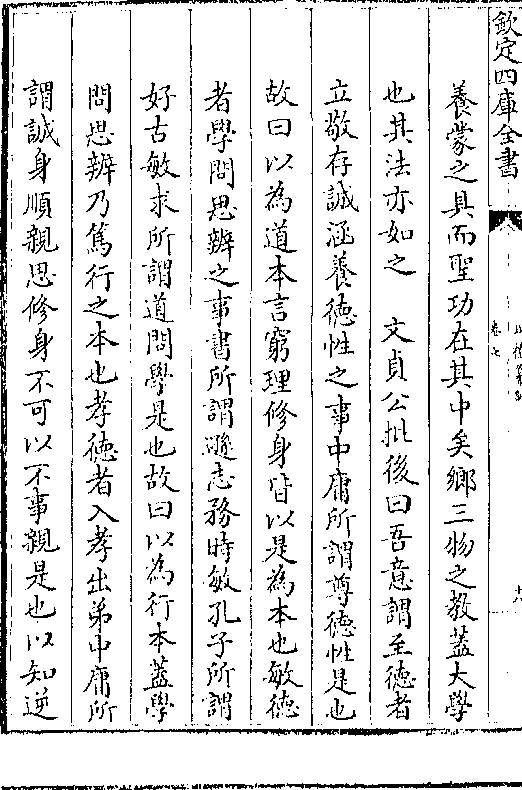 欽定四庫全書
卷七
養蒙之具而聖功在其中矣鄉三物之教蓋大學
也其法亦如之　文貞公批後曰吾意謂至德者
立敬存誠涵養德性之事中庸所謂尊德性是也
故曰以為道本言窮理修身皆以是為本也敏德
者學問思辨之事書所謂遜志務時敏孔子所謂
好古敏求所謂道問學是也故曰以為行本蓋學
問思辨乃篤行之本也孝德者入孝出弟中庸所
謂誠身順親思修身不可以不事親是也以知逆